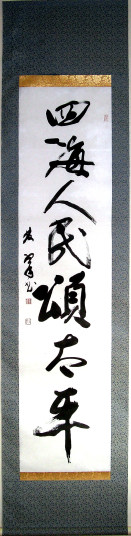 四海人民頌太平